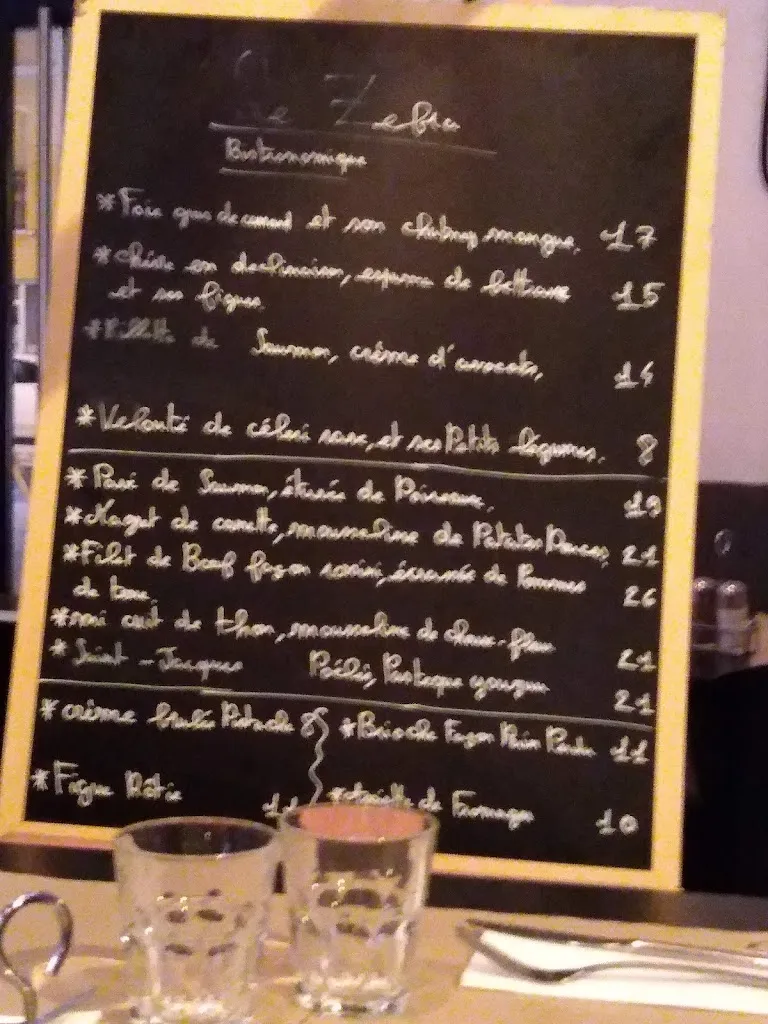 Le Zebra
Bistronomique
*Foie gras de canard et son chutney mangue, 17
*chèvre en declinaison, espuma de betterave 15
et ses figues
*Rillette de Saumon, crème d'avocats, 14
*Velouté de céleri rave, et ses Petits légumes, 8
*Pavé de Saumon, étuvée de Poireaux, 19
*Magret de canette, mousseline de Patates Douces, 21
*Filet de Boeuf façon rossini, écrasée de Pommes 26
de terre
*mi cuit de thon, mousseline de choux-fleur 21
*Saint-Jacques Poélés, Pasteque 21
*crème brulée Pistache 8 *Brioche Façon Pain Perdu 11
*Figue Rôtie 11 *Assiette de Fromages 10